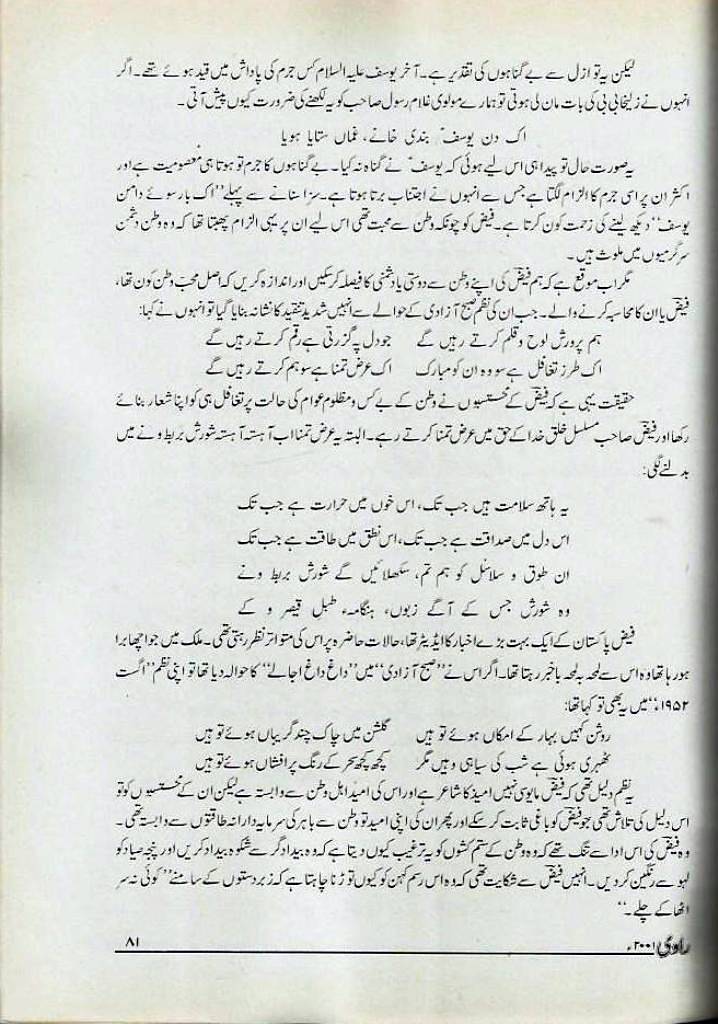 لیکن یہ تو ازل سے بے گناہوں کی تقدیر ہے۔ آخر یوسف علیہ السلام کس جرم کی پاداش میں قید ہوئے تھے۔ اگر
انہوں نے زلیخا بی بی کی بات مان لی ہوتی تو ہمارے مولوی غلام رسول صاحب کو یہ لکھنے کی ضرورت کیوں پیش آتی۔
اک دن یوسفؑ بندی خانے، غماں ستایا ہویا
یہ صورت حال تو پیدا ہی اس لیے ہوئی کہ یوسفؑ نے گناہ نہ کیا۔ بے گناہوں کا جرم تو ہوتا ہی معصومیت ہے اور
اکثر ان پر اسی جرم کا الزام لگتا ہے جس سے انہوں نے اجتناب برتا ہوتا ہے۔ سزا سنانے سے پہلے ”اک بار سوئے دامن
یوسف“ دیکھ لینے کی زحمت کون کرتا ہے۔ فیض کو چونکہ وطن سے محبت تھی اس لیے ان پر یہی الزام پھبتا تھا کہ وہ وطن دشمن
سرگرمیوں میں ملوث ہیں۔
مگر اب موقع ہے کہ ہم فیضؔ کی اپنے وطن سے دوستی یا دشمنی کا فیصلہ کر سکیں اور اندازہ کریں کہ اصل محب وطن کون تھا،
فیضؔ یا ان کا محاسبہ کرنے والے۔ جب ان کی نظم صبح آزادی کے حوالے سے انہیں شدید تنقید کا نشانہ بنایا گیا تو انہوں نے کہا:
ہم پرورش لوح و قلم کرتے رہیں گے جو دل پہ گزرتی ہے رقم کرتے رہیں گے
اک طرز تغافل ہے سو وہ ان کو مبارک اک عرض تمنا ہے سو ہم کرتے رہیں گے
حقیقت یہی ہے کہ فیضؔ کے محتسبوں نے وطن کے بے کس و مظلوم عوام کی حالت پر تغافل ہی کو اپنا شعار بنائے
رکھا اور فیضؔ صاحب مسلسل خلق خدا کے حق میں عرض تمنا کرتے رہے۔ البتہ یہ عرض تمنا اب آہستہ آہستہ شورش بربط و نے میں
بدلنے لگی:
یہ ہاتھ سلامت ہیں جب تک، اس خوں میں حرارت ہے جب تک
اس دل میں صداقت ہے جب تک، اس نطق میں طاقت ہے جب تک
ان طوق و سلاسل کو ہم تم، سکھلائیں گے شورش بربط و نے
وہ شورش جس کے آگے زبوں، ہنگامہء طبل قیصر و کے
فیض پاکستان کے ایک بہت بڑے اخبار کا ایڈیٹر تھا، حالات حاضرہ پر اس کی متواتر نظر رہتی تھی۔ ملک میں جو اچھا برا
ہو رہا تھا وہ اس سے لمحہ بہ لمحہ باخبر رہتا تھا۔ اگر اس نے ”صبح آزادی“ میں ”داغ داغ اجالے“ کا حوالہ دیا تھا تو اپنی نظم ”اگست
۱۹۵۲ء“ میں یہ بھی تو کہا تھا:
روشن کہیں بہار کے امکاں ہوئے تو ہیں گلشن میں چاک چند گریباں ہوئے تو ہیں
ٹھہری ہوئی ہے شب کی سیاہی وہیں مگر کچھ کچھ سحر کے رنگ پر افشاں ہوئے تو ہیں
یہ نظم دلیل تھی کہ فیضؔ مایوسی نہیں امید کا شاعر ہے اور اس کی امید اہل وطن سے وابستہ ہے لیکن ان کے محتسبوں کو تو
اس دلیل کی تلاش تھی جو فیضؔ کو باغی ثابت کر سکے اور پھر ان کی اپنی امید تو وطن سے باہر کی سرمایہ دارانہ طاقتوں سے وابستہ تھی۔
وہ فیضؔ کی اس ادا سے تنگ تھے کہ وہ وطن کے ستم کشوں کو یہ ترغیب کیوں دیتا ہے کہ وہ بیداد گر سے شکوہ بیداد کریں اور پنجہ صیاد کو
لہو سے رنگین کر دیں۔ انہیں فیضؔ سے شکایت تھی کہ وہ اس رسم کہن کو کیوں توڑنا چاہتا ہے کہ زبردستوں کے سامنے ”کوئی نہ سر
اٹھا کے چلے۔“
راوی ۲۰۰۱ء ۸۱